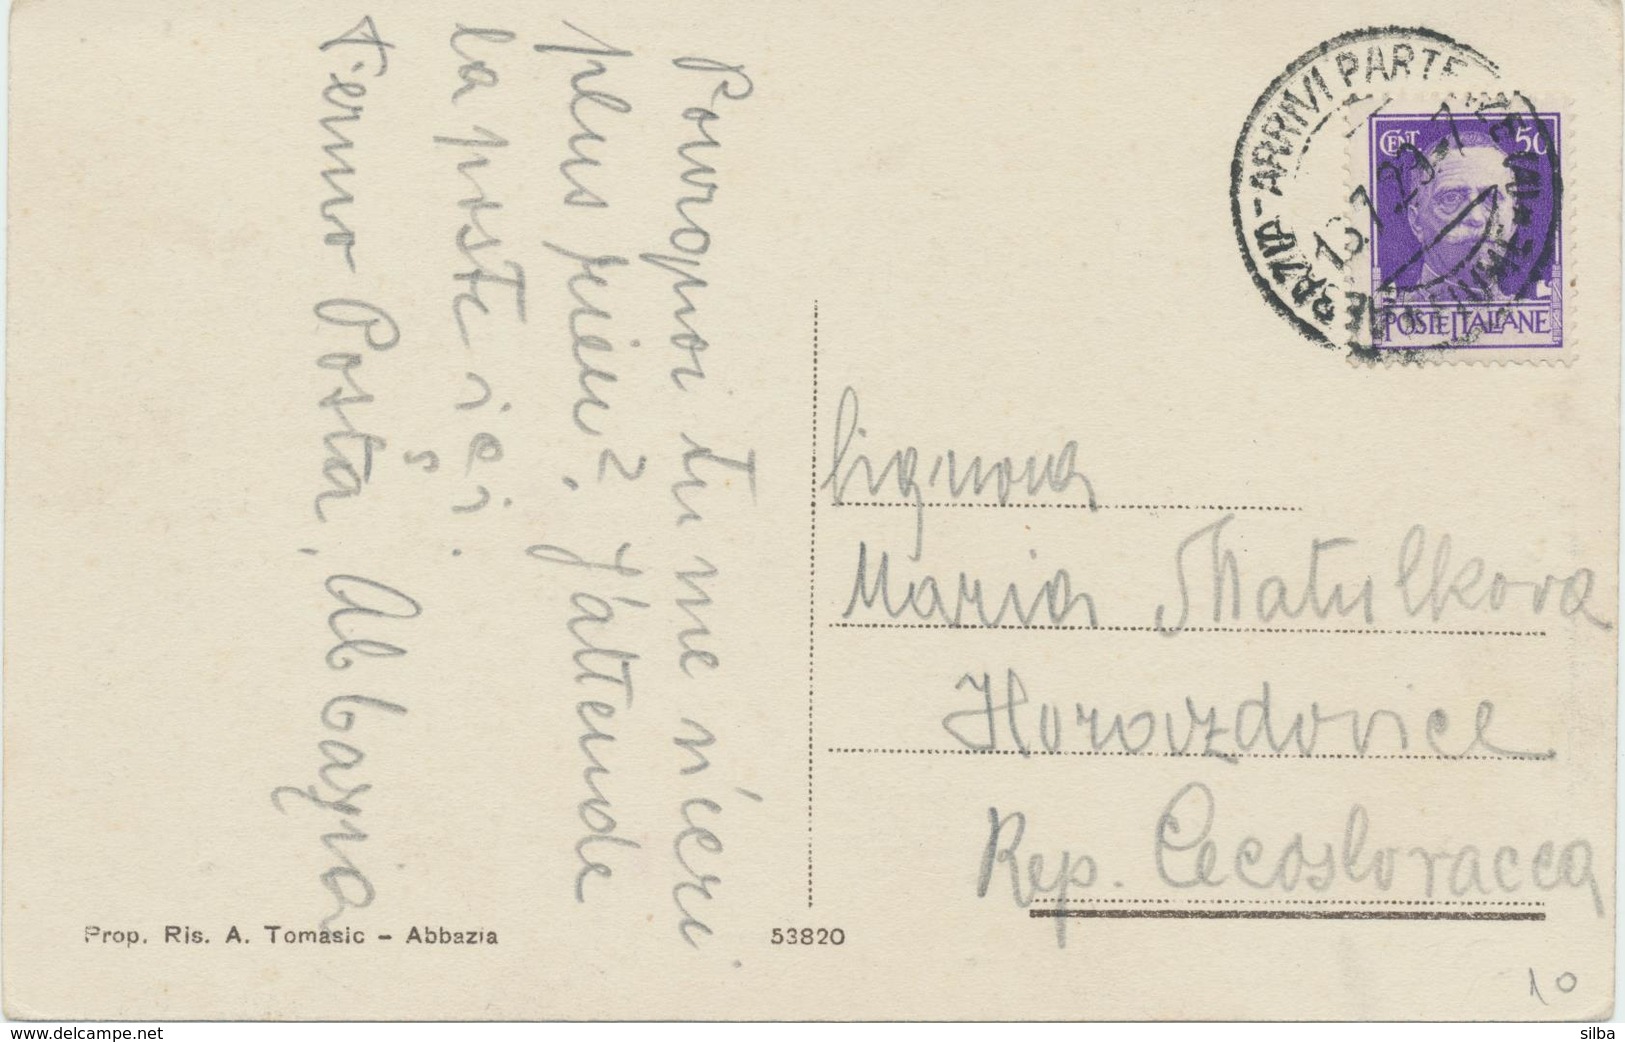 Pourqoi tu me n'écri
plus rien? J'attende
la poste içi.
Fermo Posta, Abbazia
Prop. Ris. A. Tomasic – Abbazia
53820
ABBAZIA - ARRIVI PARTENZE
13.7.29-7
VII
CENT. 50
POSTE ITALIANE
Signora
Maria Matulkova
Horovzdovice
Rep. Cecoslovacca
10
delcampe.net
silba